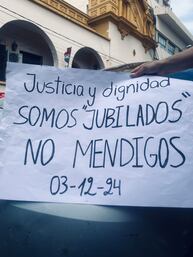 Justicia y dignidad
SOMOS "JUBILADOS"
NO MENDIGOS
03-12-24